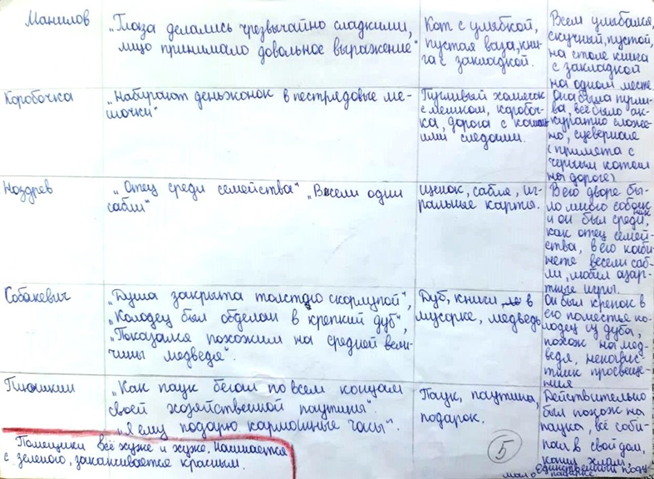 Манилов
„Глаза делались чрезвычайно сладкими,
лицо принимало довольное выражение"
Кот с улыбкой,
пустая ваза, кни
га с закладкой.
Всем улыбался,
скучный, пустой,
на столе книга
с закладкой
на одном месте.
Коробочка
„Набирают деньжонок в пестрядевые ме-
шочки"
Пугливый хомяк
с мешком, коробоч-
ка, дорога с
следами.
Она была пугли-
ва, всё было ак-
куратно сложе-
но, суеверная
(примета с
черным котом
на дороге)
Ноздрев
„Отец среди семейства" „Висели одни
сабли"
щенок, сабля, иг-
ральные карты.
В его дворе бы-
ло много собак
и он был среди,
как отец семей-
ства, в его каби-
нете висели саб-
ли, любил азарт-
ные игры.
Собакевич
„Душа закрыта толстою скорлупой",
„Колодец был обделан в крепкий дуб",
„Показался похожим на средней вели-
чины медведя".
Дуб, книги в
мусорке, медведь
Он был крепок, в
его поместье ко-
лодец из дуба,
похож на мед-
ведя, ненавист
ник просвеще-
ния
Плюшкин
„Как паук бегал по всем концам
своей хозяйственной паутины".
„Я ему подарю карманные часы".
Паук, паутина,
подарок.
Действительно
был похож на
паука, всё соби-
рал в свой дом,
копил хлам,
единственный
мало
Помещики всё хуже и хуже. Начинается
с зеленого, заканчивается красным.
5